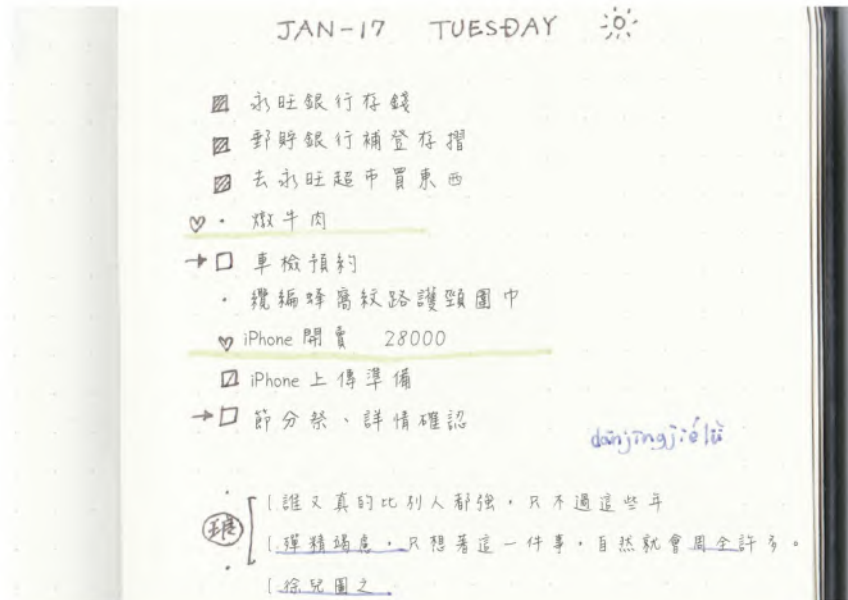 JAN-17 TUESDAY
永旺銀行存錢
郵貯銀行補登存摺
去永旺超市買東西
燉牛肉
車檢預約
纜編蜂窩紋路護頸圍巾
iPhone 開賣 28000
iPhone 上傳準備
節分祭、詳情確認
dānjīngjiélǜ
誰又真的比別人都強，只不過這些年
殫精竭慮，只想著這一件事，自然就會周全許多。
徐兒圖之